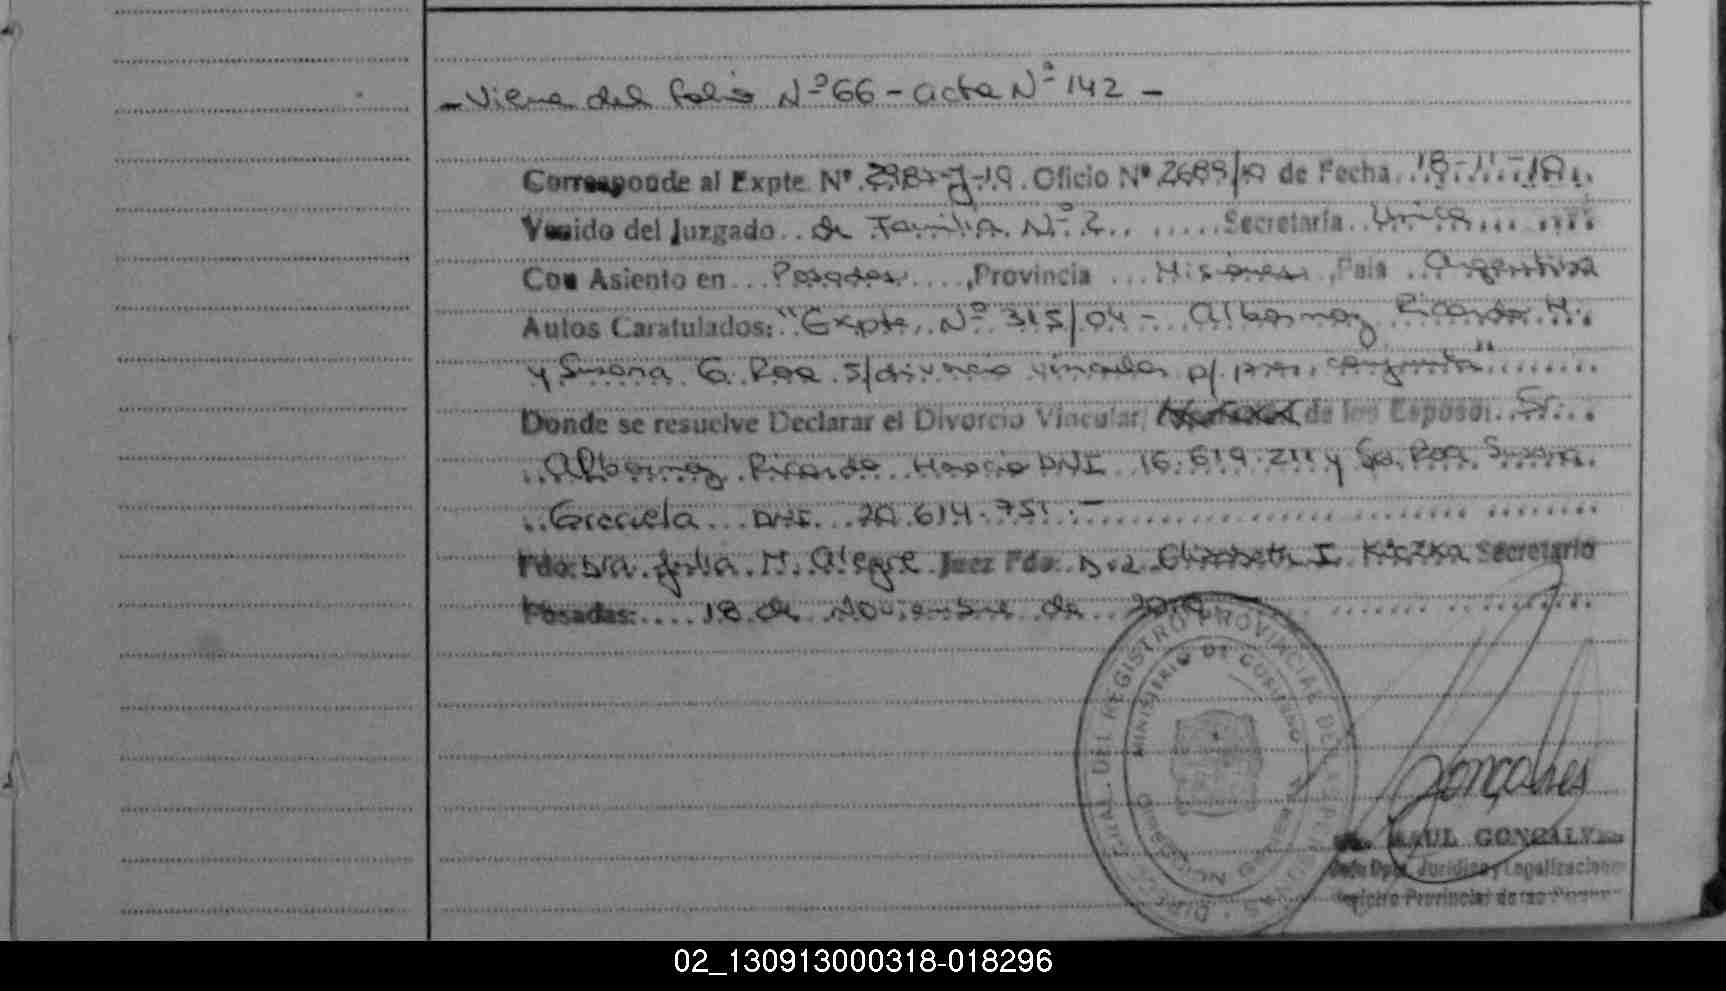 - Viene del folio Nº 66 - acta Nº 142 -
Corresponde al Expte. Nº J-19. Oficio Nº de Fecha 18-11-
Venido del Juzgado de Familia Nº 2 Secretaría Unica
Con Asiento en Posadas, Provincia Misiones, Pais Argentina
Autos Caratulados: "Expte. Nº 315/04 - Albornoz Ricardo H.
y Susana G. Roa s/divorcio vincular p/ pres. conjunta"
Donde se resuelve Declarar el Divorcio Vincular/ de los Esposos Sr.
Albornoz Ricardo Horacio DNI 16.619.211 y Sra. Roa Susana
Graciela DNI 20.614.751.-
Fdo: Dra. Julia M. Alegre Juez Fdo. Dra Elizabeth I. Kiczka Secretario
Posadas: 18 de Noviembre de
DIREC. GRAL. DEL REGISTRO PROVINCIAL DE LAS PERSONAS
MINISTERIO DE GOBIERNO
Gonçalves
RAUL GONCALVES
Jefe Dpto. Jurídico y Legalizaciones
Registro Provincial de las Personas
02_130913000318-018296